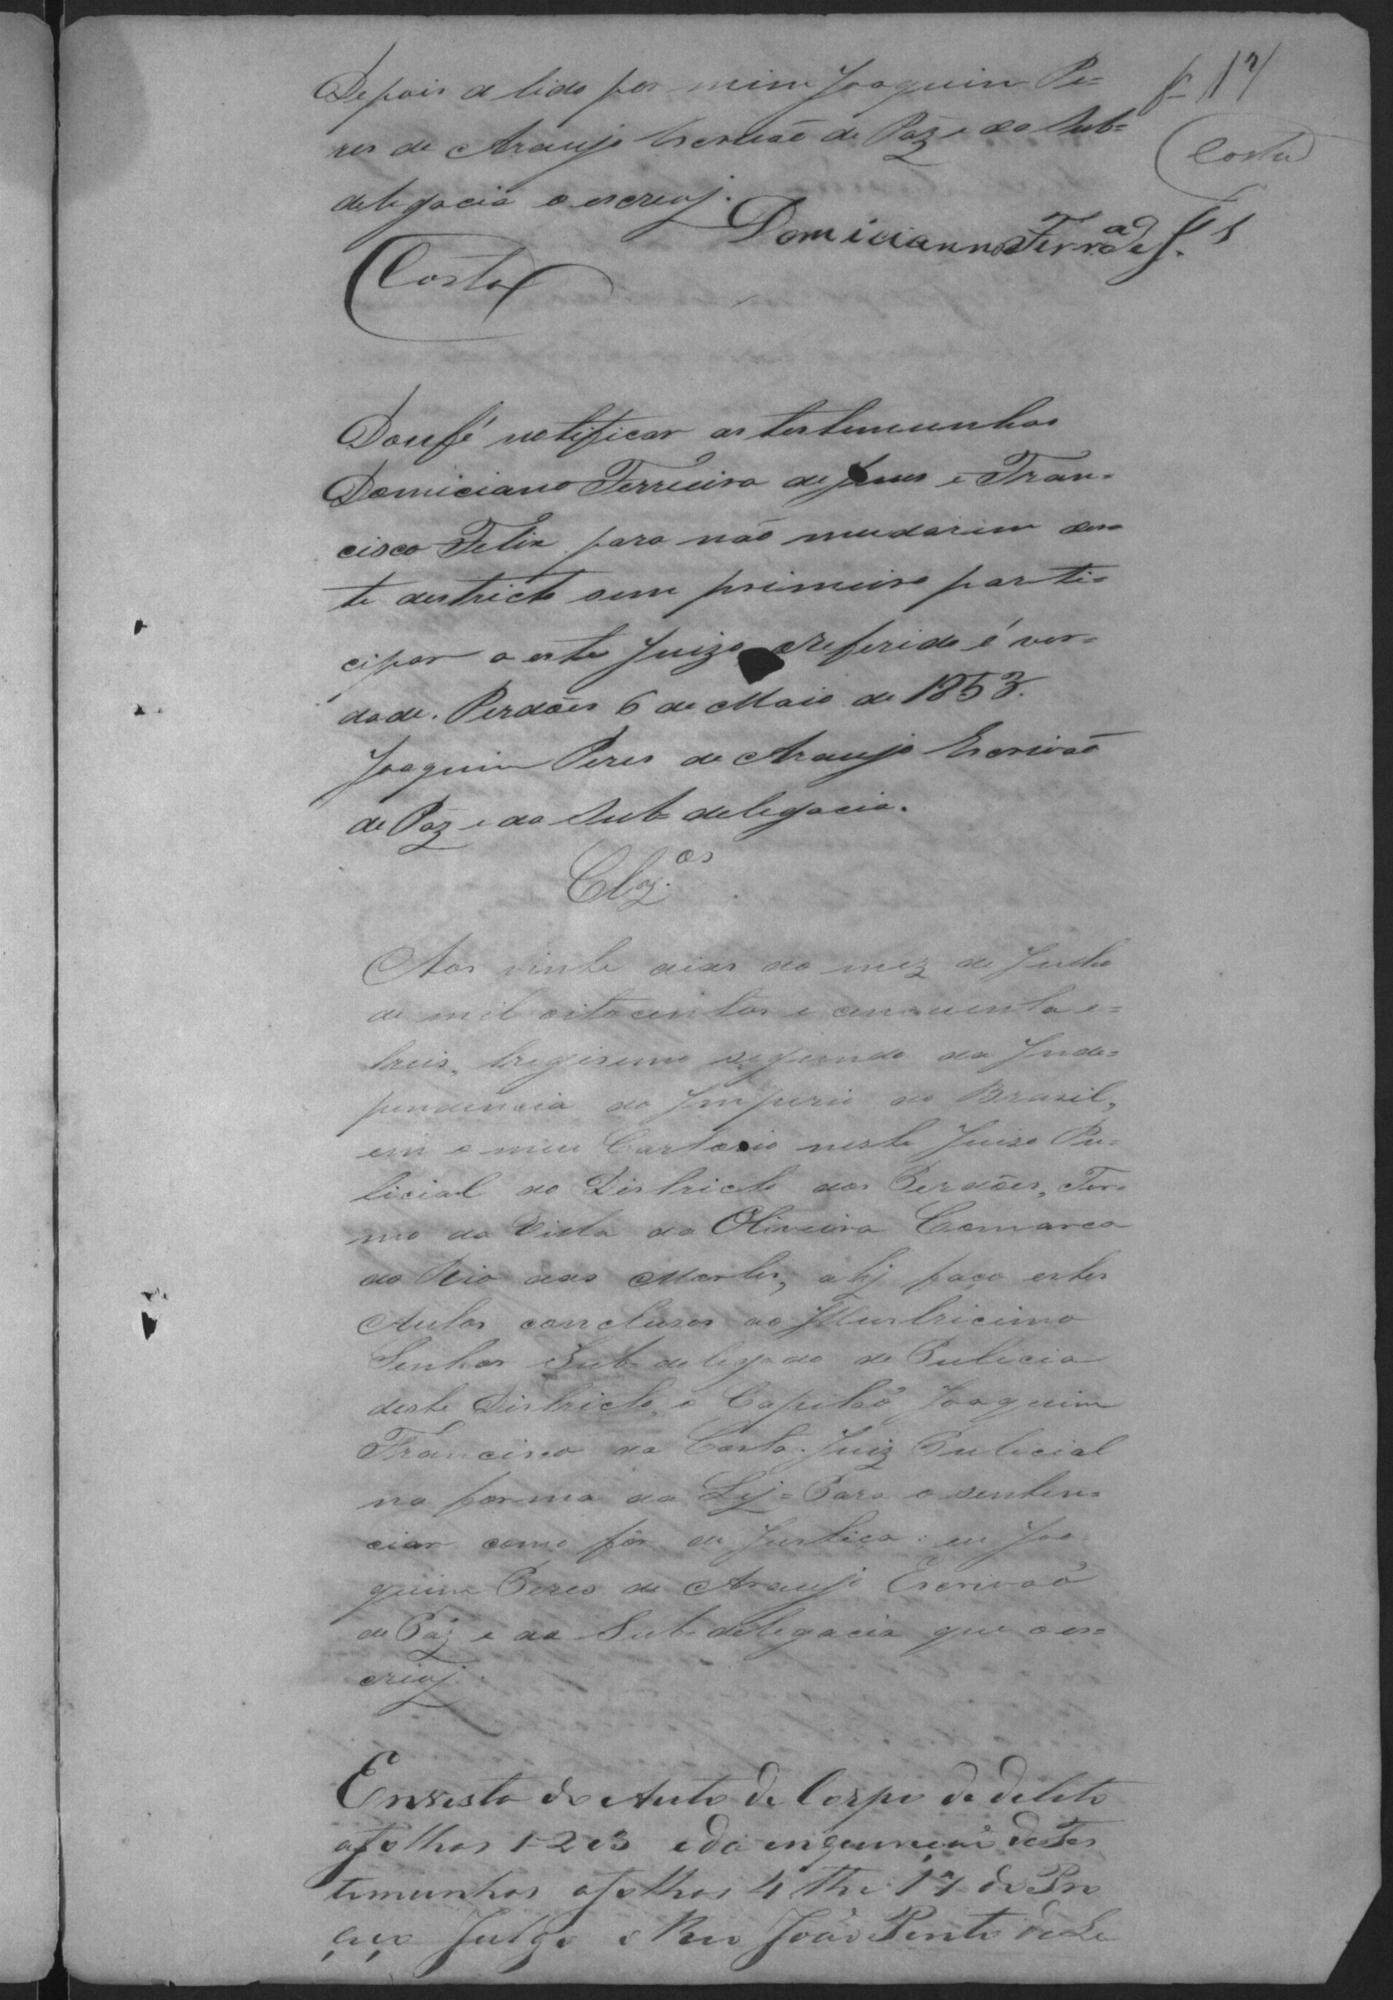 f 17
Costa
Depois de lido por mim Joaquim Pe=
res de Araujo Escrivaõ de Paz e da Sub=
delegacia o escrevj.
Domicianno Ferr.ª de J.
Costa
Doufé notificar as testemunhas
Domiciano Ferreira de Jesus e Fran=
cisco Felix para não mudarem des=
te destricto sem primeiro parti=
cipar a este Juizo o referido é ver=
dade. Perdões 6 de Maio de 1853.
Joaquim Peres de Araujo Escrivaõ
de Paz e da Sub delegacia.
Clz.os
Aos vinte dias do mez de Julho
de mil oitocentos e cencoenta e=
treis, tregisimo segundo da Inde=
pendencia do Imperio do Brasil,
em o meu Cartorio neste Juizo Pu=
licial do Districto dos Perdões, Ter=
mo da Villa da Oliveira Comarca
do Rio das Mortes, ahj faço estes
Autos concluzos ao Illustricimo
Senhor Sub delegado de Pulicia
deste Districto, o Capitão Joaquim
Francisco da Costa. Juiz Pulicial
na forma da Lej = Para o senten=
ciar como fôr de Justiça: eu Joa=
quim Peres de Araujo Escrivaõ
de Paz e da Sub delegacia que o es=
crevj.
Envista do Auto de Corpo de delito
afolhas 1-2 e 3 e da enquiriçaõ de Tes
timunhas afolhas 4 the 17 do Pro
ceço Julgo o Reo João Pinto de Le